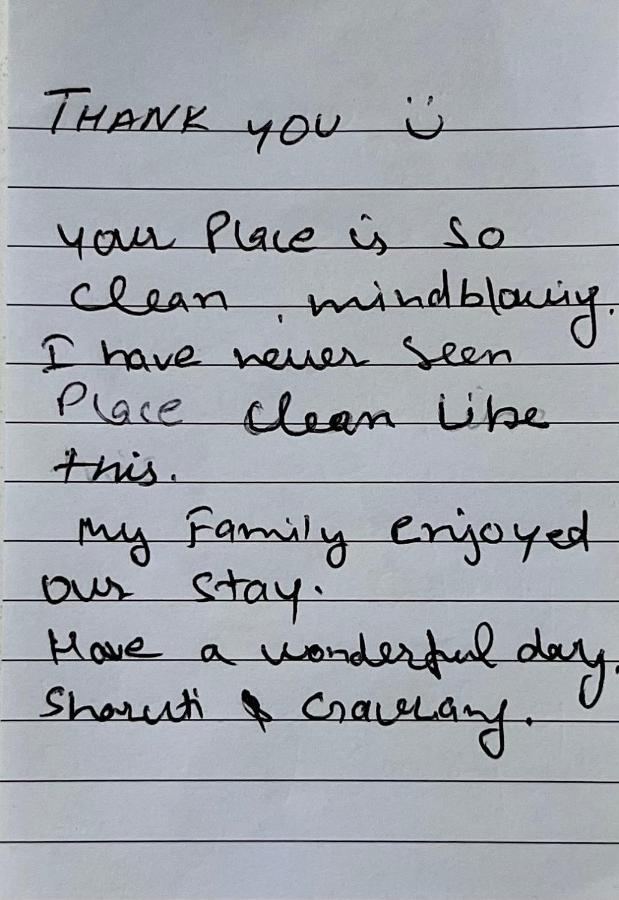 THANK YOU ü
your Place is so
clean, mindblowing.
I have never seen
Place clean like
this.
My Family enjoyed
our stay.
Have a wonderful day.
Sharuti &